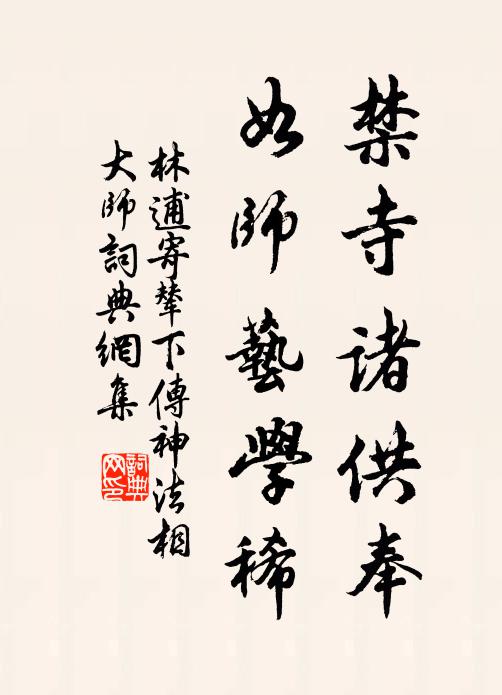 禁寺諸供奉
如師藝學稀
林逋寄輦下傳神法相
大師詞典網集
詞典
网印